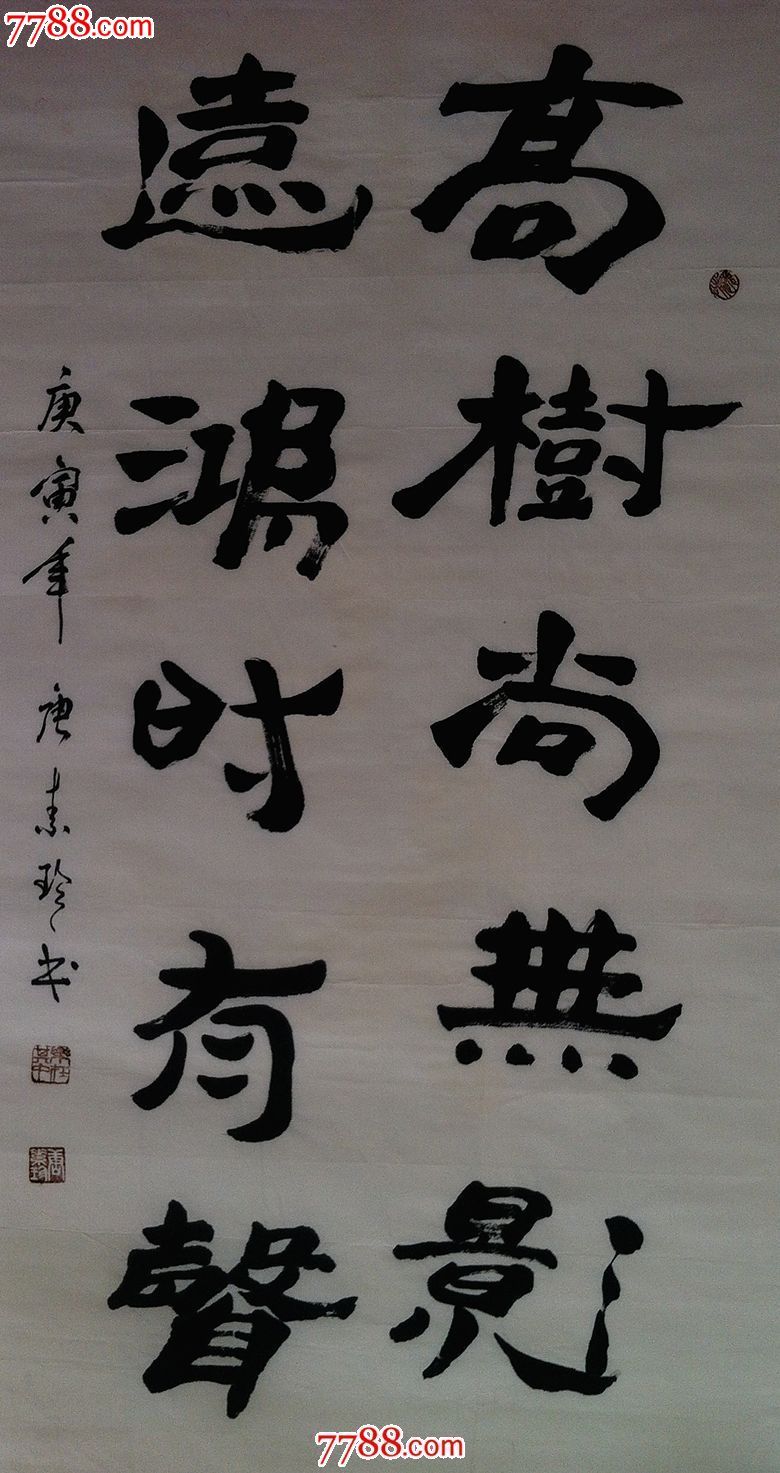 7788.com
高樹尚無影
遠鴻时有聲
庚寅年 唐素珍书
樂在其中
7788.com